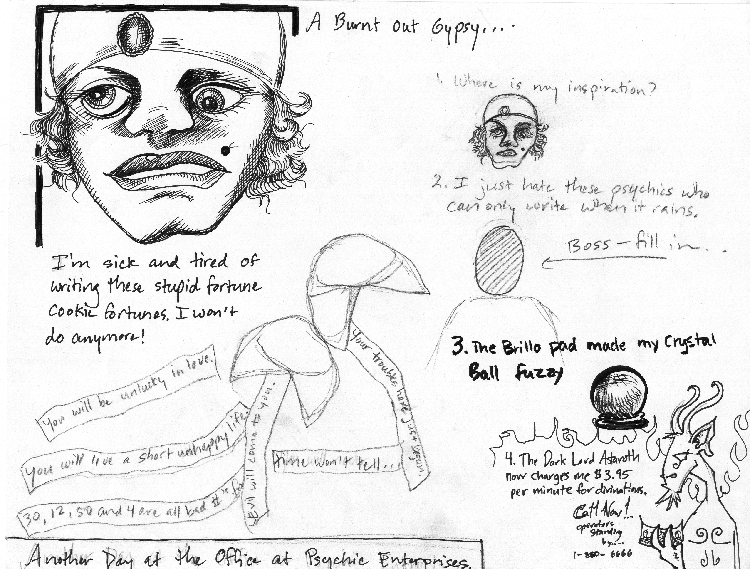 A Burnt Out Gypsy....
1. Where is my inspiration?
2. I just hate these psychics who
can only write when it rains.
Boss - fill in...
I'm sick and tired of
writing these stupid fortune
cookie fortunes. I won't
do anymore!
3. The Brillo pad made my Crystal
Ball fuzzy
Your troubles have just begun
You will be unlucky in love.
You will live a short unhappy life.
Evil will come to you.
Time won't tell...
30, 12, 50 and 4 are all bad #'s
4. The Dark Lord Astaroth
now charges me $3.95
per minute for divinations.
Call Now!
operators
standing
by....
1-880-6666
Another Day at the Office at Psychic Enterprises.